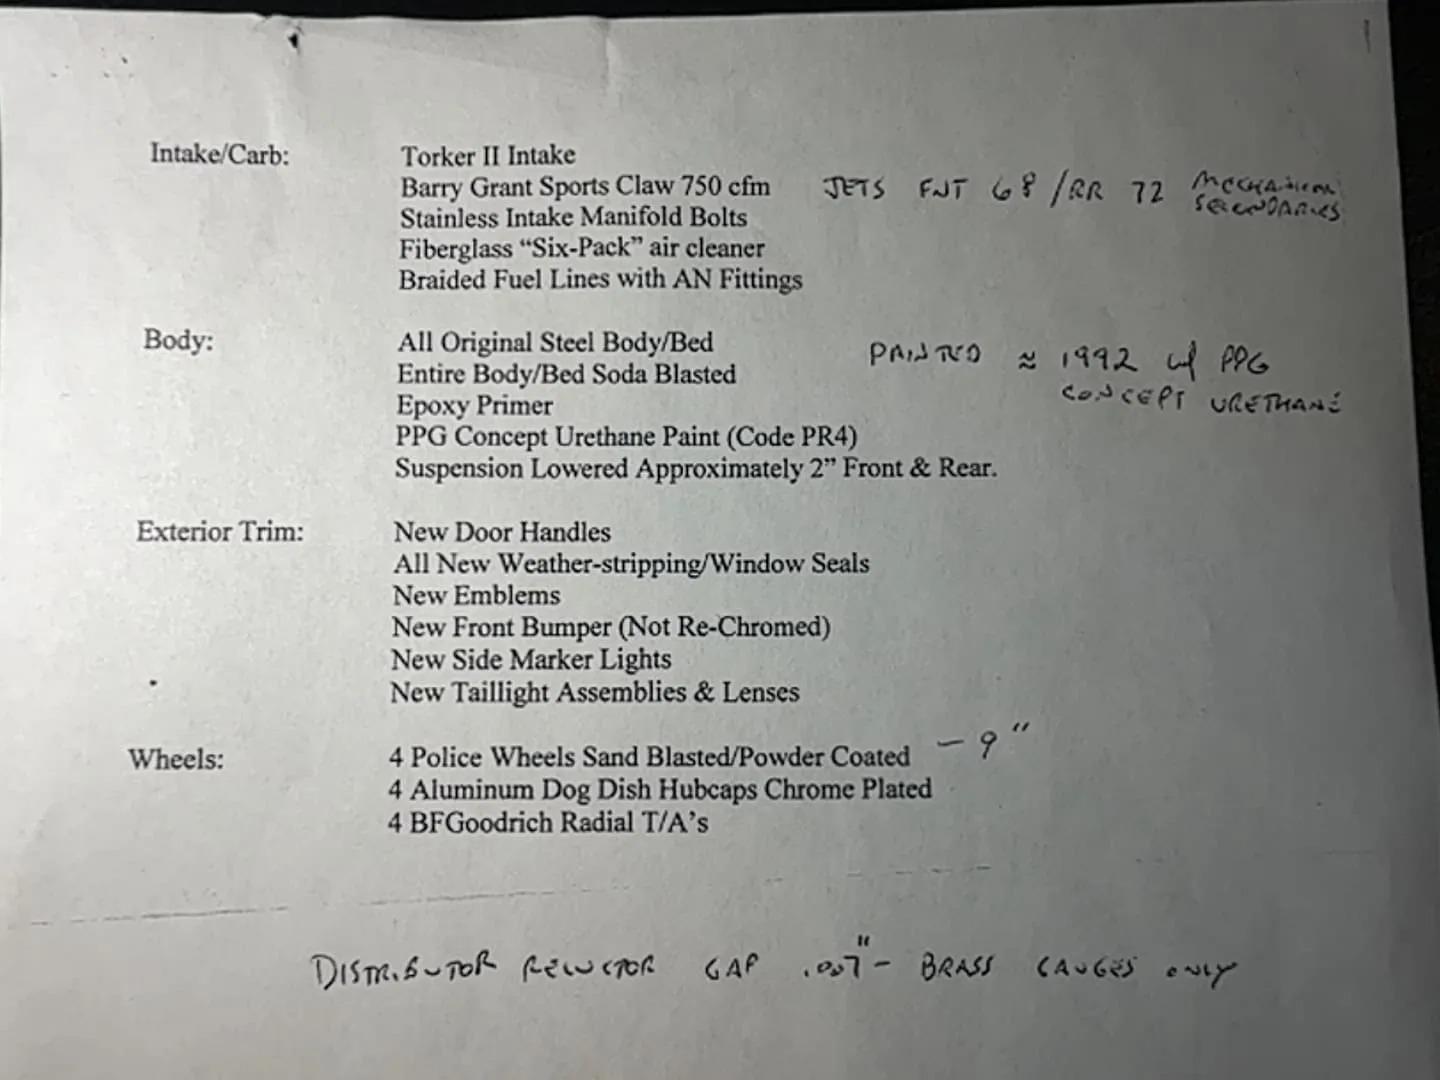 Intake/Carb: Torker II Intake
Barry Grant Sports Claw 750 cfm JETS FNT 68/RR 72 MECHANICAL SECONDARIES
Stainless Intake Manifold Bolts
Fiberglass “Six-Pack” air cleaner
Braided Fuel Lines with AN Fittings
Body: All Original Steel Body/Bed PAINTED ≈ 1992 w/ PPG
Entire Body/Bed Soda Blasted CONCEPT URETHANE
Epoxy Primer
PPG Concept Urethane Paint (Code PR4)
Suspension Lowered Approximately 2” Front & Rear.
Exterior Trim: New Door Handles
All New Weather-stripping/Window Seals
New Emblems
New Front Bumper (Not Re-Chromed)
New Side Marker Lights
New Taillight Assemblies & Lenses
Wheels: 4 Police Wheels Sand Blasted/Powder Coated — 9"
4 Aluminum Dog Dish Hubcaps Chrome Plated
4 BFGoodrich Radial T/A’s
DISTRIBUTOR RELUCTOR GAP .007" - BRASS GAUGES ONLY